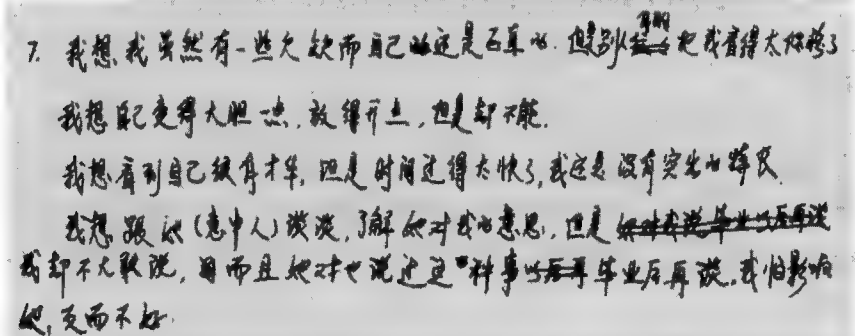 7. 我想我虽然有一些欠缺而自己还是 但是别人 把我看得太 了
我想自己变得大胆一点,放得开点,但是却不能.
我想看到自己很有才华,但是时间过得太快了,我还是没有突出的
我想跟她(意中人)谈谈,了解她对我的意思,但是
我却不大敢说,因而且她对也说过这种事以后再毕业后再谈,我怕影响
她,反而不好.